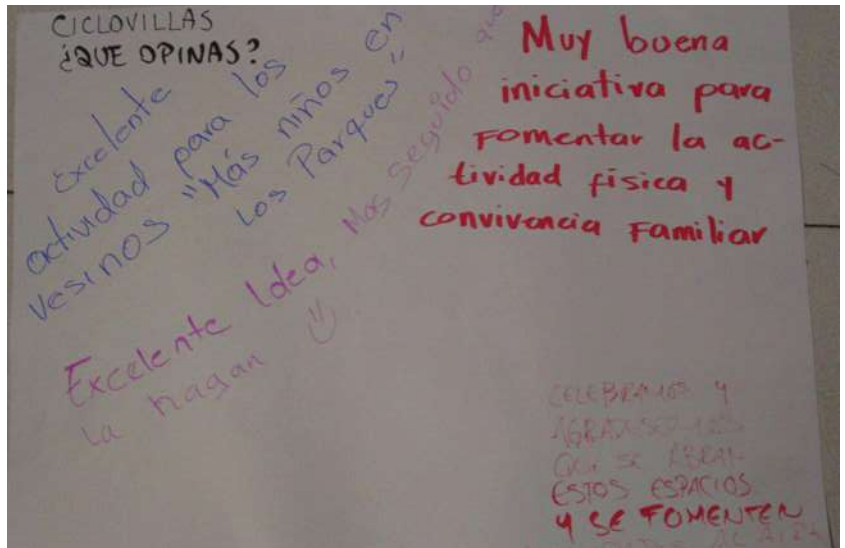 CICLOVILLAS
¿QUE OPINAS?
Excelente
actividad para los
vesinos "Más niños en
los Parques"
Excelente Idea, Mas seguido que
la hagan
Muy buena
iniciativa para
Fomentar la ac-
tividad física y
convivencia Familiar
CELEBRAMOS Y
QUE SE ABRAN
ESTOS ESPACIOS
Y SE FOMENTEN